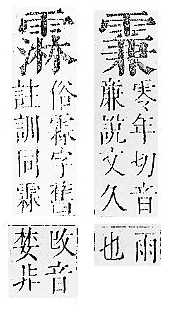 䨬
零年切音
廉說文久
雨
也
俗霖字舊
註訓同霖
改音
婪非